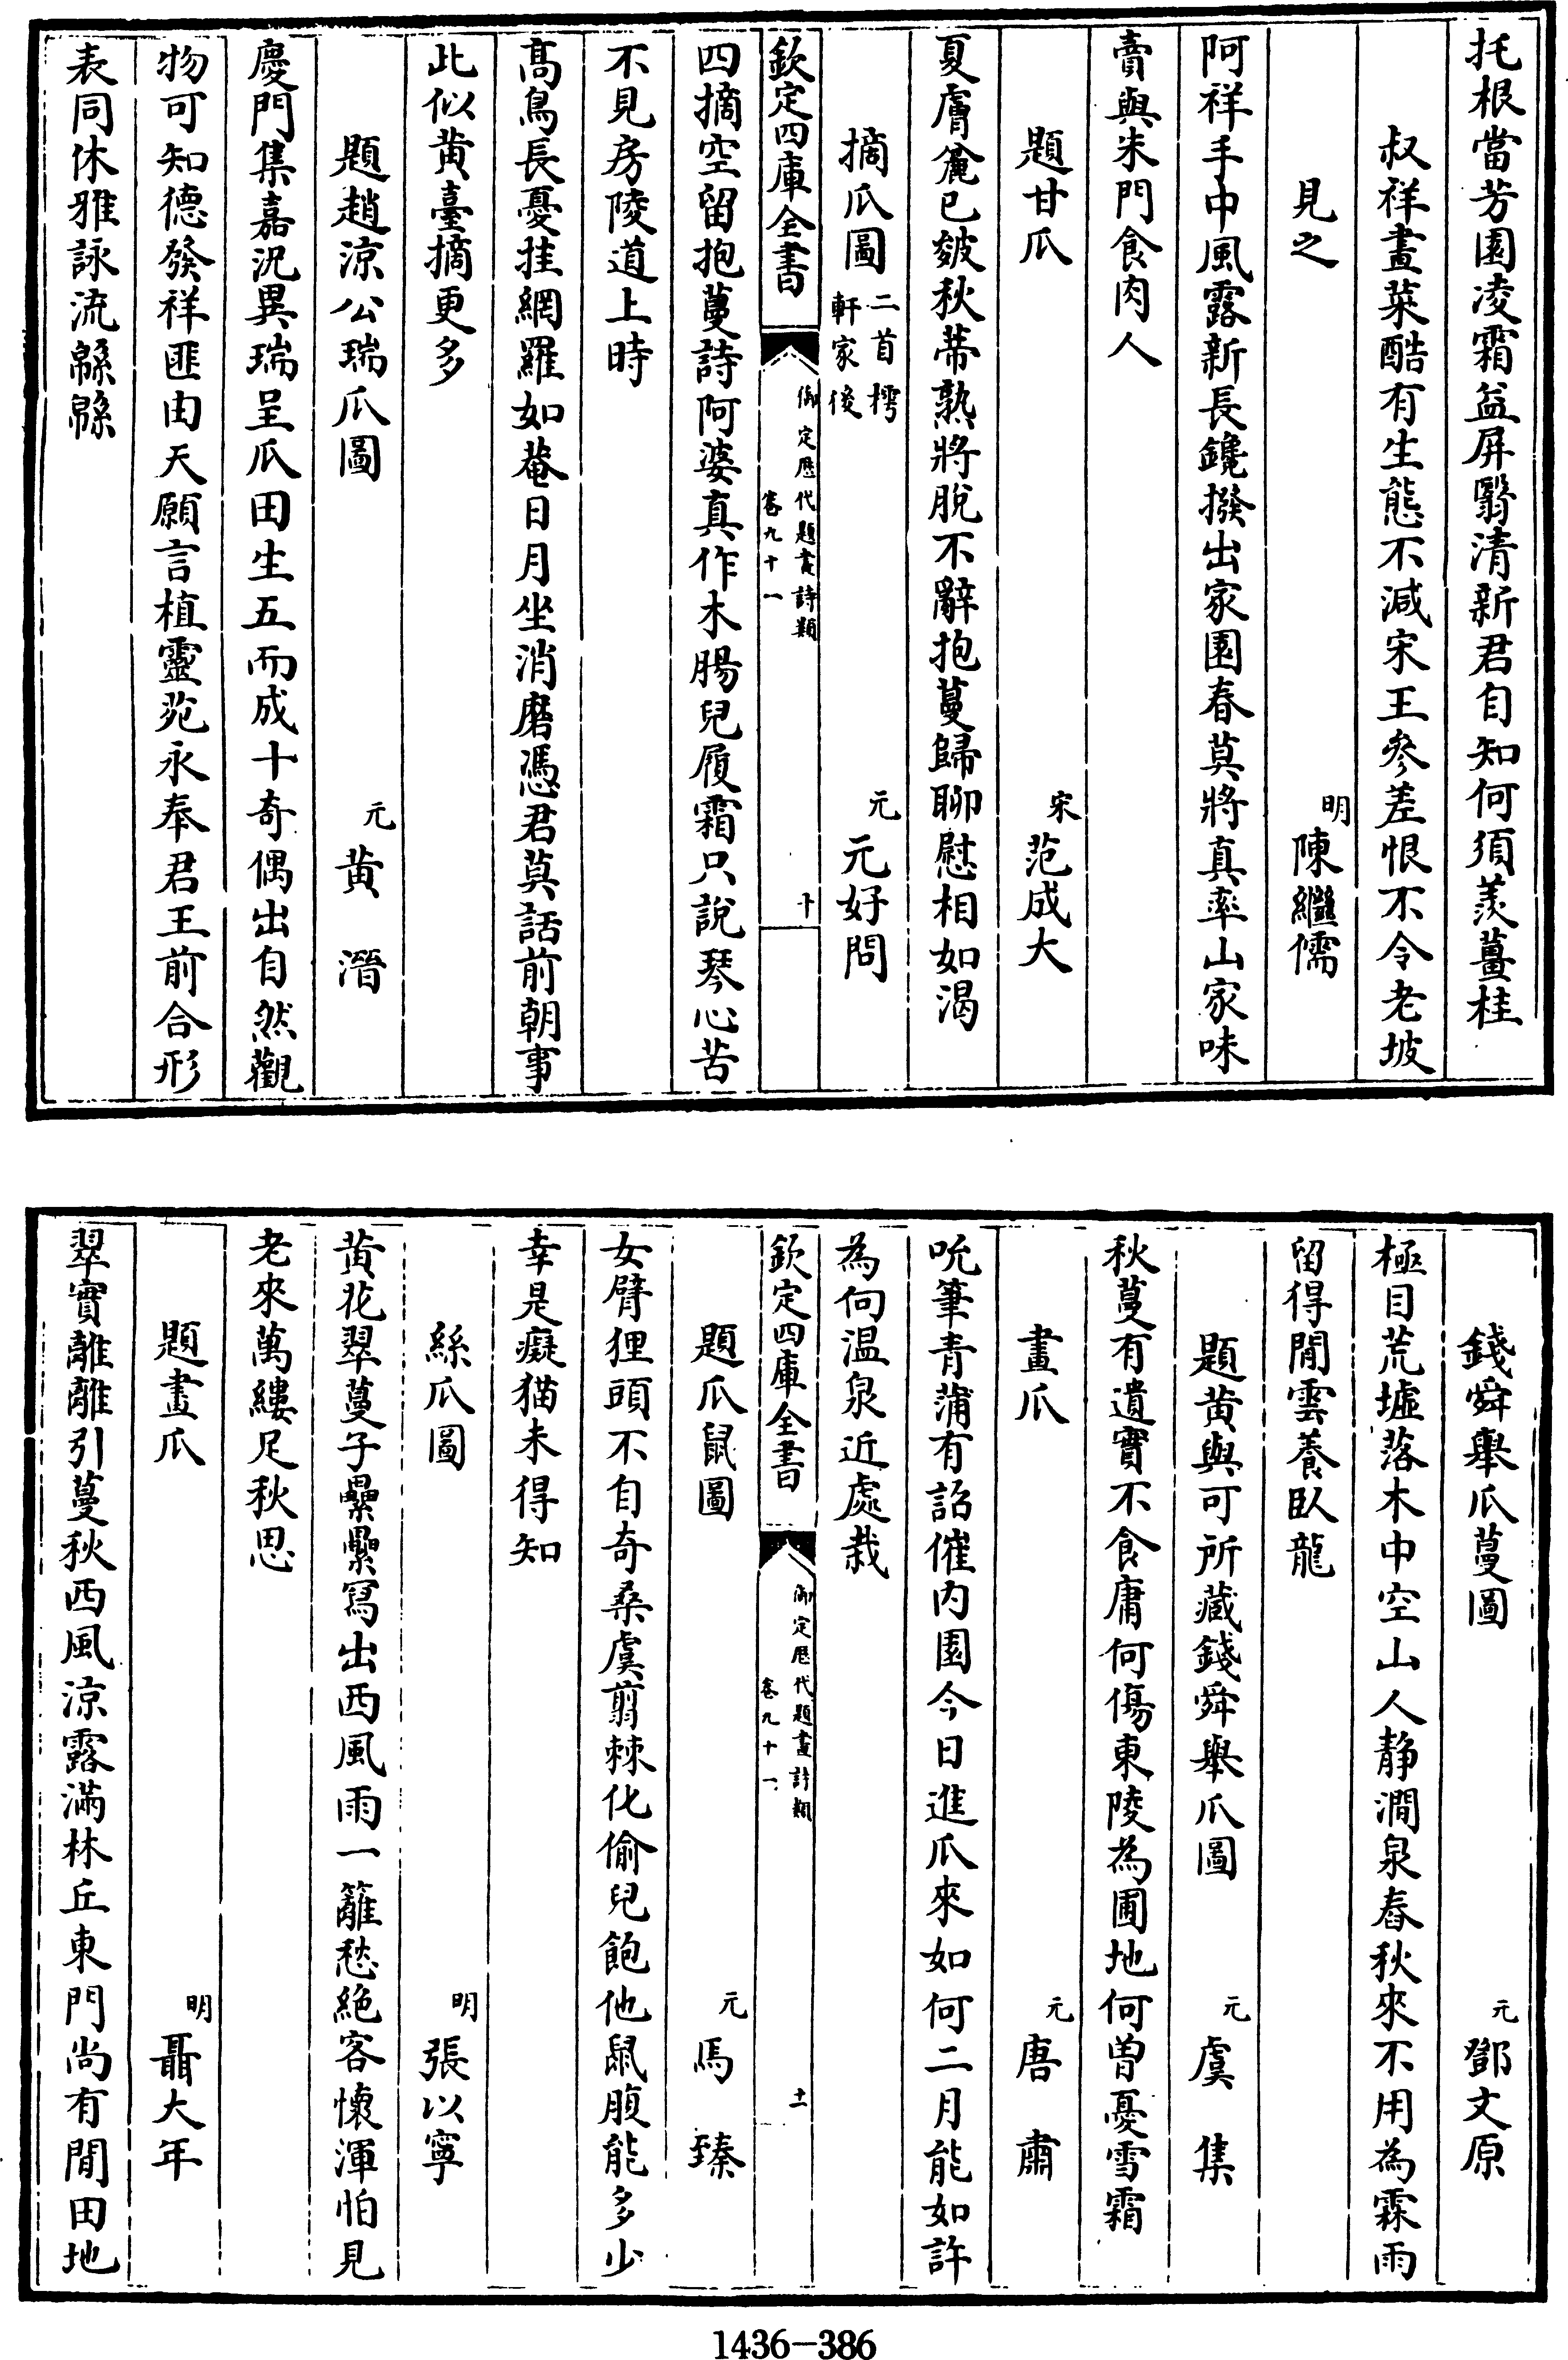 托根當芳園凌霜益屏翳清新君自知何須羨薑桂
叔祥畫菜酷有生態不減宋王參差恨不令老坡
見之
明陳繼儒
阿祥手中風露新長鑱撥出家園春莫將真率山家味
賣與朱門食肉人
題甘瓜
宋范成大
夏膚麄已皴秋蒂熟將脫不辭抱蔓歸聊慰相如渴
摘瓜圖二首樗軒家後
元元好問
欽定四庫全書
御定歷代題畫詩類
卷九十一
十
四摘空留抱蔓詩阿婆真作木腸兒履霜只說琴心苦
不見房陵道上時
高鳥長憂挂網羅如菴日月坐消磨憑君莫話前朝事
此似黃臺摘更多
題趙涼公瑞瓜圖
元黃溍
慶門集嘉況異瑞呈瓜田生五而成十奇偶出自然觀
物可知德發祥匪由天願言植靈苑永奉君王前合形
表同休雅詠流緜緜
錢舜舉瓜蔓圖
元鄧文原
極目荒墟落木中空山人静澗泉舂秋來不用為霖雨
留得閒雲養臥龍
題黃與可所藏錢舜舉瓜圖
元虞集
秋蔓有遺實不食庸何傷東陵為圃地何曽憂雪霜
畫瓜
元唐肅
吮筆青蒲有詔催内園今日進瓜來如何二月能如許
為向温泉近處栽
欽定四庫全書
御定歷代題畫詩類
卷九十一
十一
題瓜鼠圖
元馬臻
女臂狸頭不自奇桑虞翦棘化偷兒飽他鼠腹能多少
幸是癡猫未得知
絲瓜圖
明張以寧
黃花翠蔓子纍纍寫出西風雨一籬愁絶客懷渾怕見
老來萬縷足秋思
題畫瓜
明聶大年
翠實離離引蔓秋西風涼露滿林丘東門尚有閒田地
1436-386